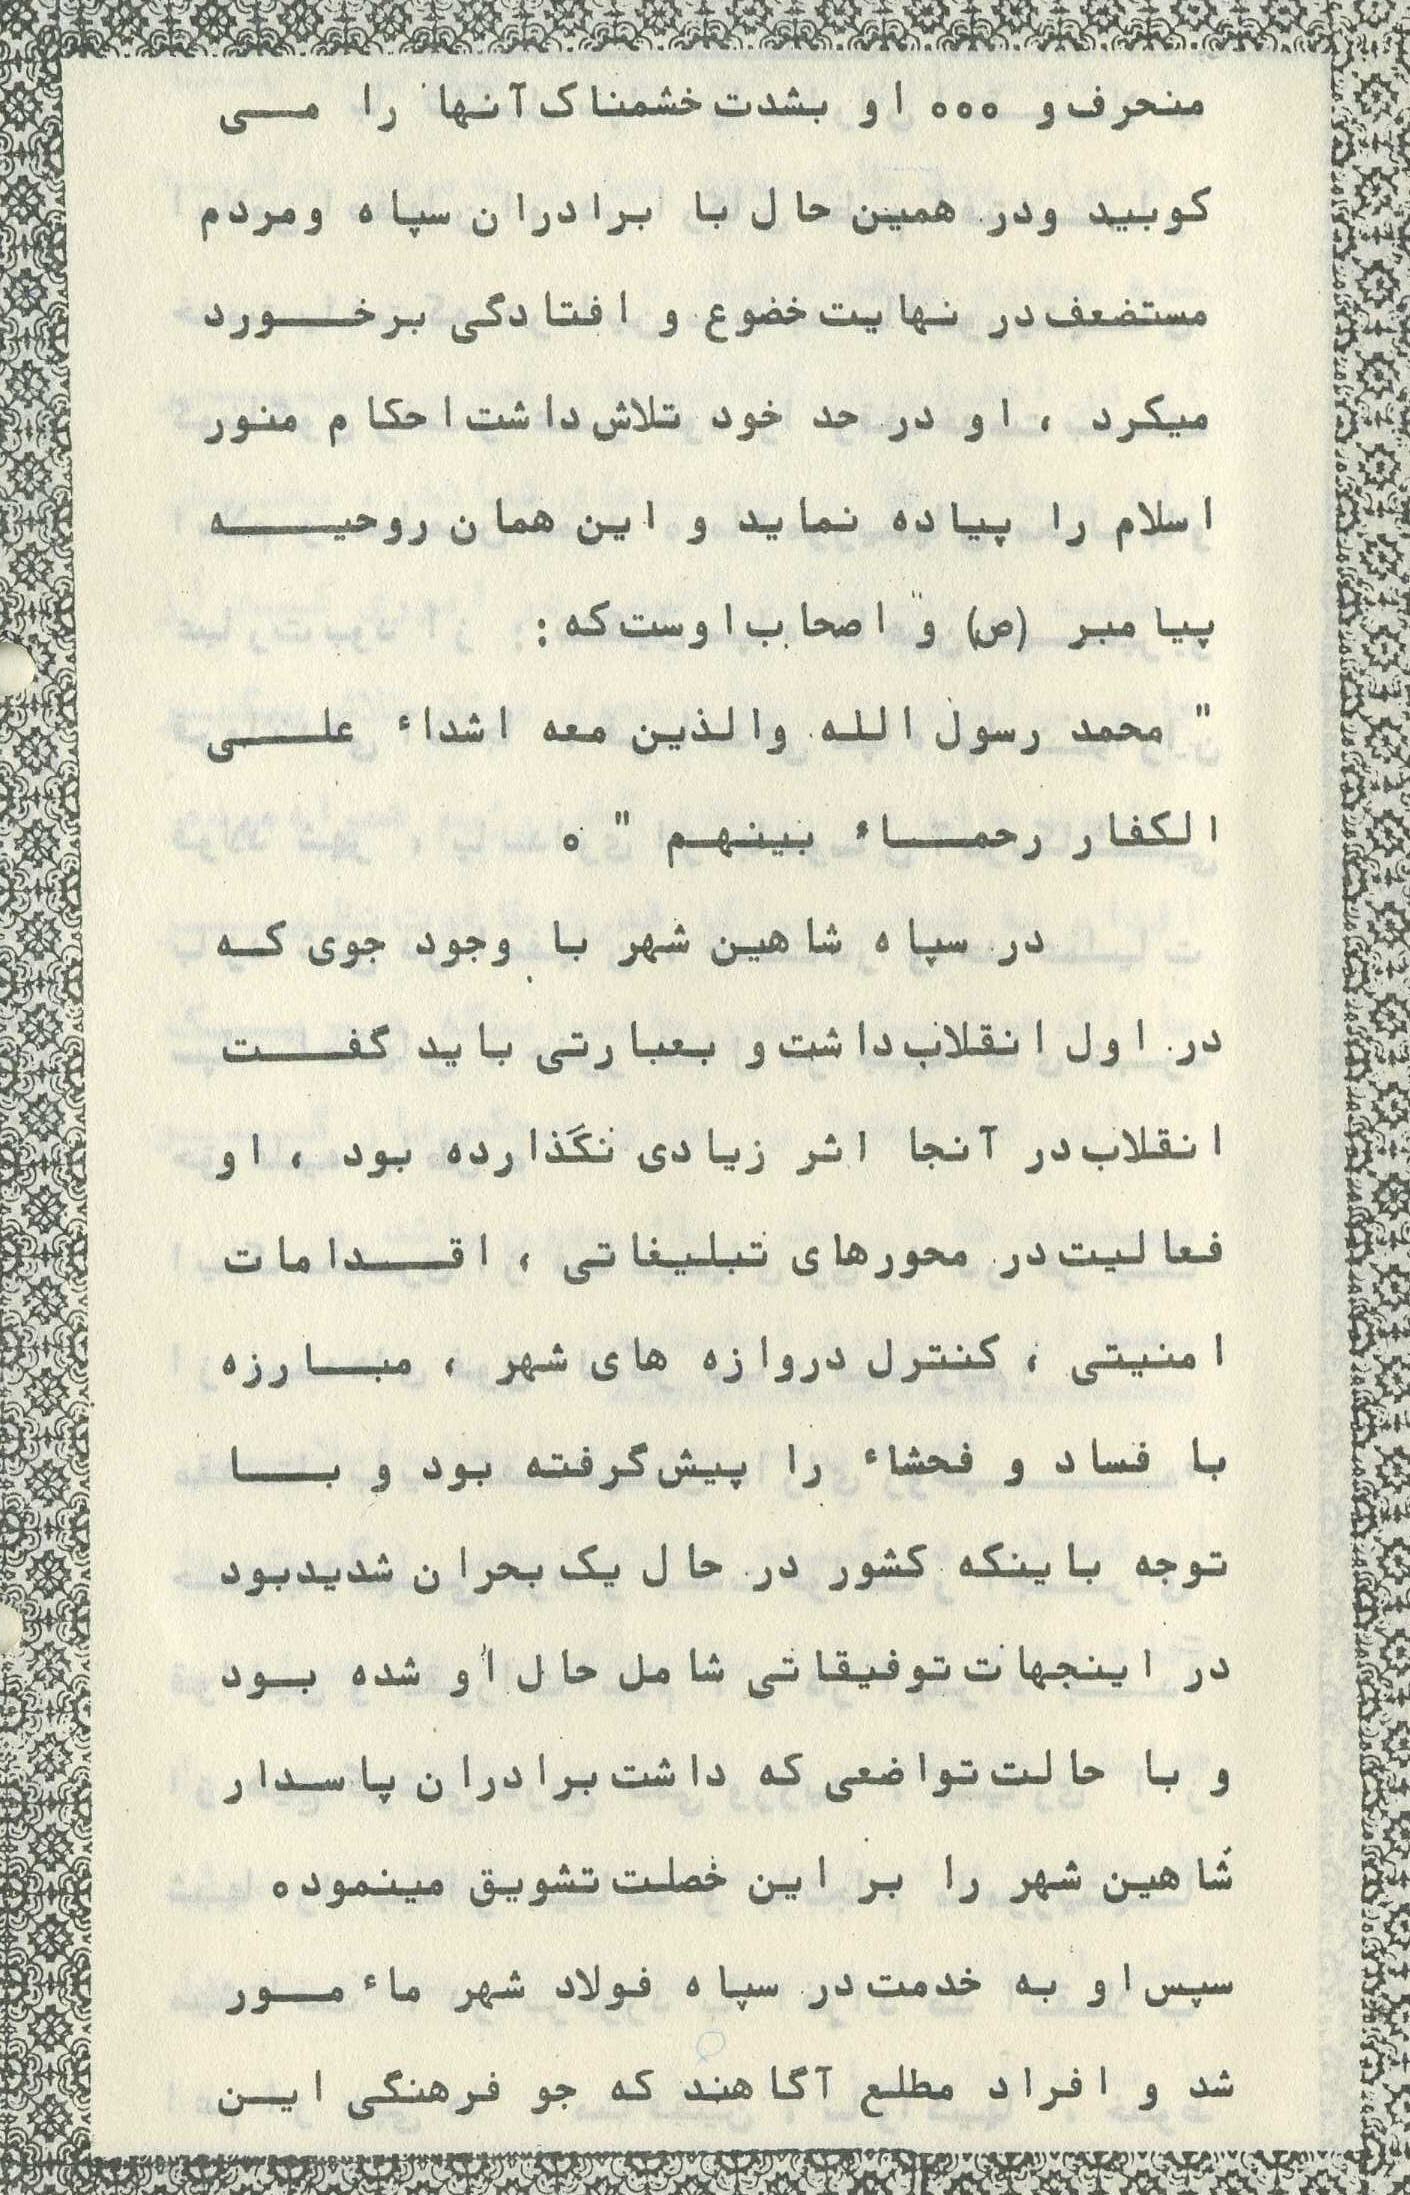 منحرف و ... او بشدت خشمناک آنها را می
کوبید ودر همین حال با برادران سپاه ومردم
مستضعف در نهایت خضوع و افتادگی برخورد
میکرد ، او در حد خود تلاش داشت احکام منور
اسلام را پیاده نماید و این همان روحیه
پیامبر (ص) و اصحاب اوست که :
" محمد رسول الله والذین معه اشداء علی
الکفار رحماء بینهم " .
در سپاه شاهین شهر با وجود جوی که
در اول انقلاب داشت و بعبارتی باید گفت
انقلاب در آنجا اثر زیادی نگذارده بود ، او
فعالیت در محورهای تبلیغاتی ، اقدامات
امنیتی ، کنترل دروازه های شهر ، مبارزه
با فساد و فحشاء را پیش گرفته بود و با
توجه باینکه کشور در حال یک بحران شدیدبود
در اینجهات توفیقاتی شامل حال او شده بود
و با حالت تواضعی که داشت برادران پاسدار
شاهین شهر را بر این خصلت تشویق مینمود.
سپس او به خدمت در سپاه فولاد شهر ماءمور
شد و افراد مطلع آگاهند که جو فرهنگی این